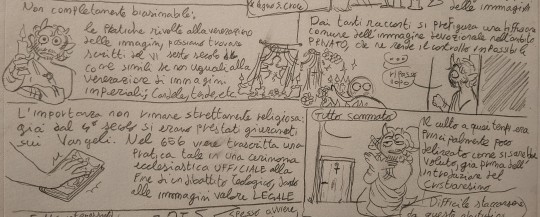 le legno S. Croce
delle immagini
Non completamente biasimabile;
le pratiche rivolte alla venerazione
delle immagini, possiamo trovare
scritti del VI sesto secolo
come simili se non uguali alla
venerazione di immagini
imperiali; Candele, tende, etc
Dai tanti racconti si prefigura una diffusione
comune dell'immagine devozionale nell'ambito
PRIVATO, che ne rende il controllo impossibile
...
RIPASSO
DOPO
L'importanza non rimane strettamente religiosa:
già dal 4° secolo si erano prestati giuramenti
sui Vangeli. Nel 656 viene trascritta una
pratica tale in una cerimonia
ecclesiastica UFFICIALE alla
fine di un dibattito teologico, dando
alle immagini valore LEGALE
Tutto sommato
7
Il culto a quei tempi era
principalmente poco
delineato come si sarebbe
voluto, già prima dell'
introduzione del
Cristianesimo
Difficile staccarsi
da queste abitudini
spesso avviene,